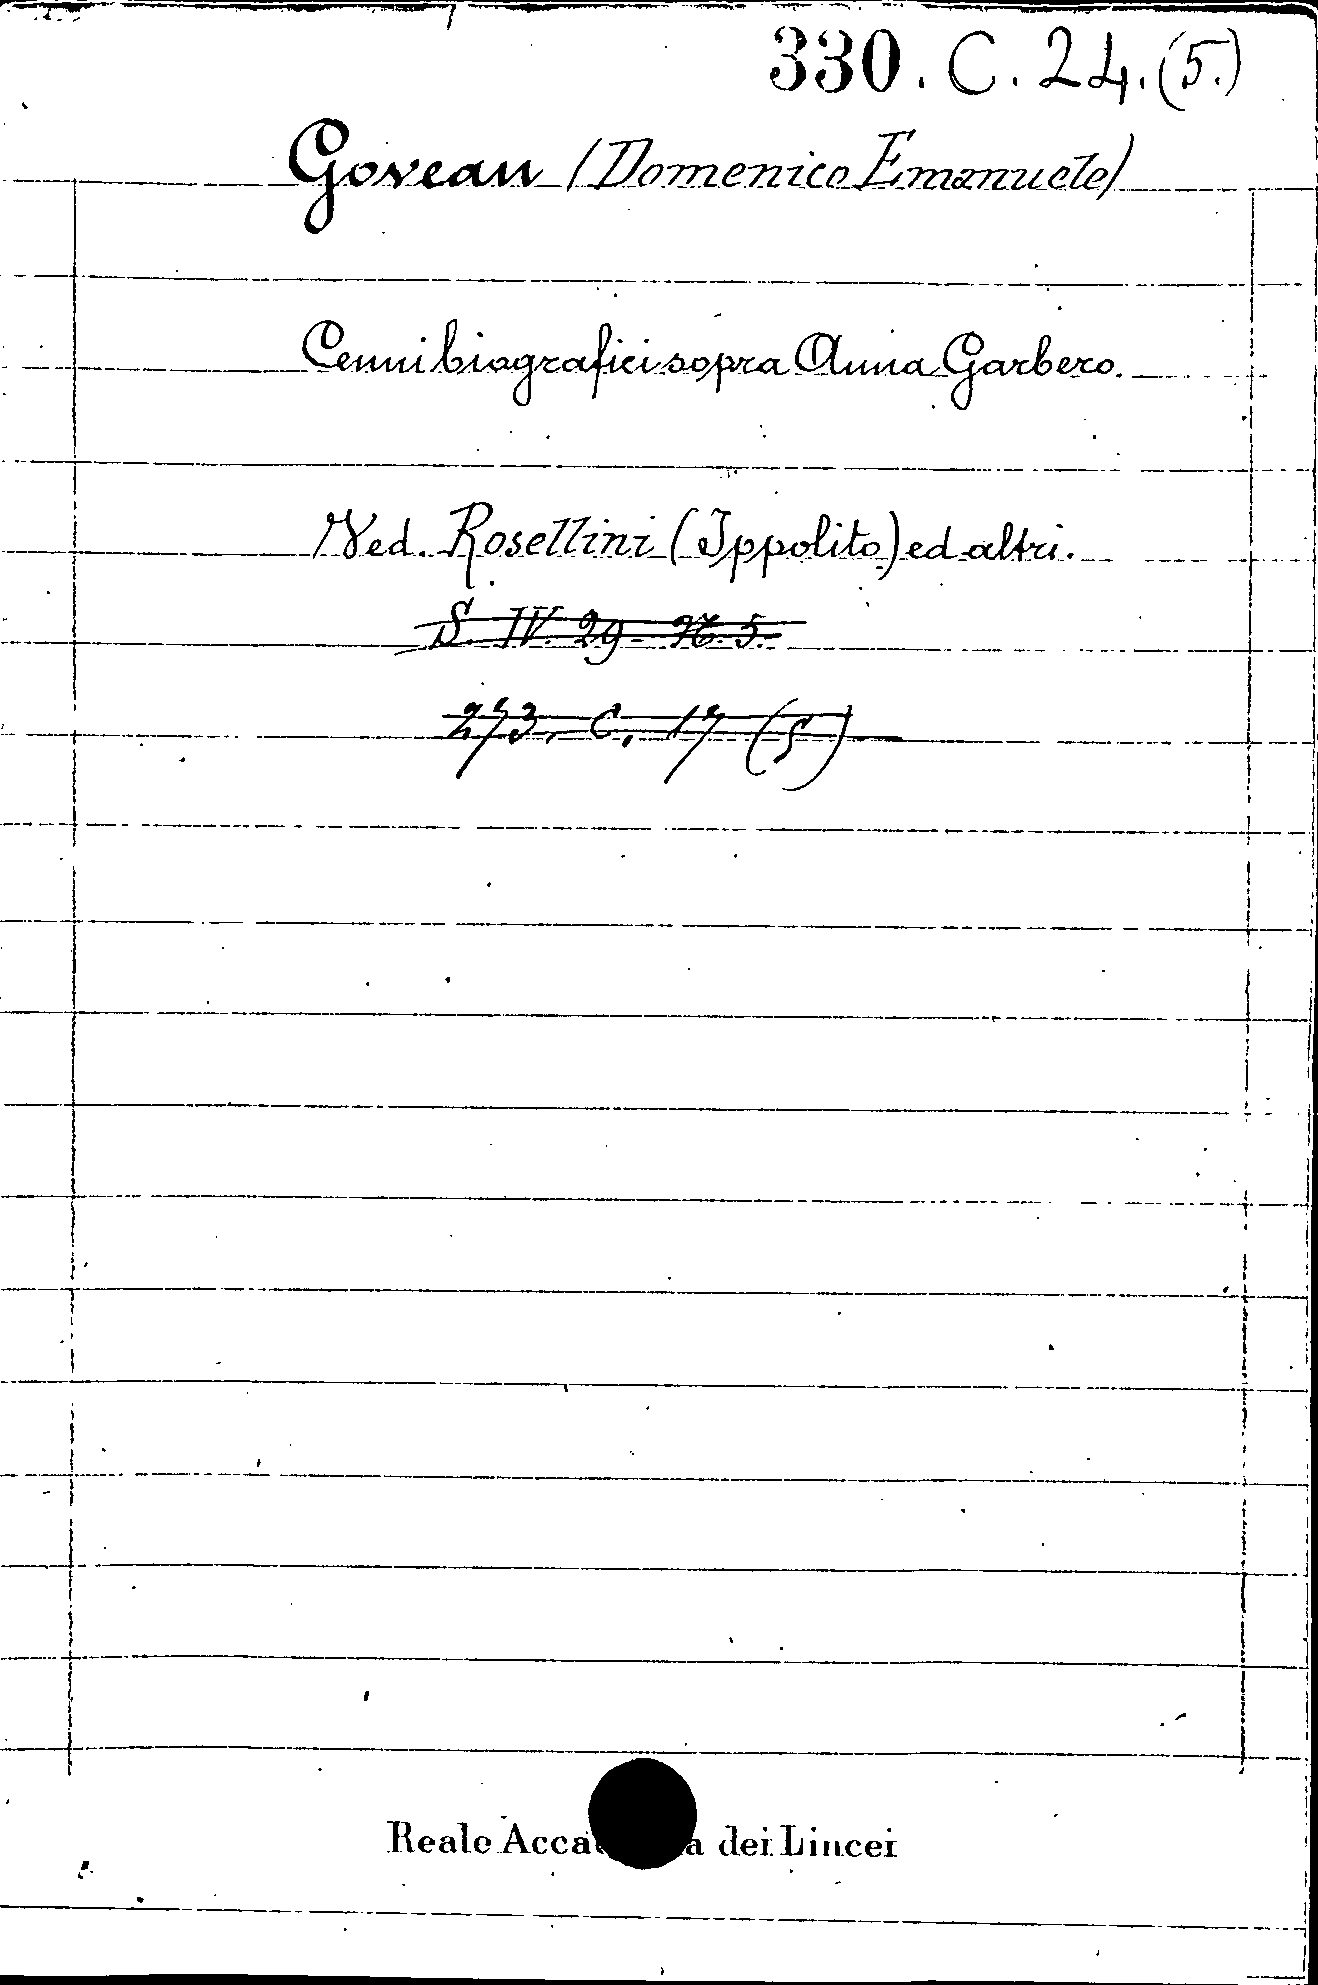 330. C. 24. (5.)
Govean (Domenico Emanuele)
Cenni biografici sopra Anna Garbero.
Ved. Rosellini (Ippolito) ed altri.
S. IV. 29. N. 5.
273. C. 17 (5)
Reale Acca a dei Lincei